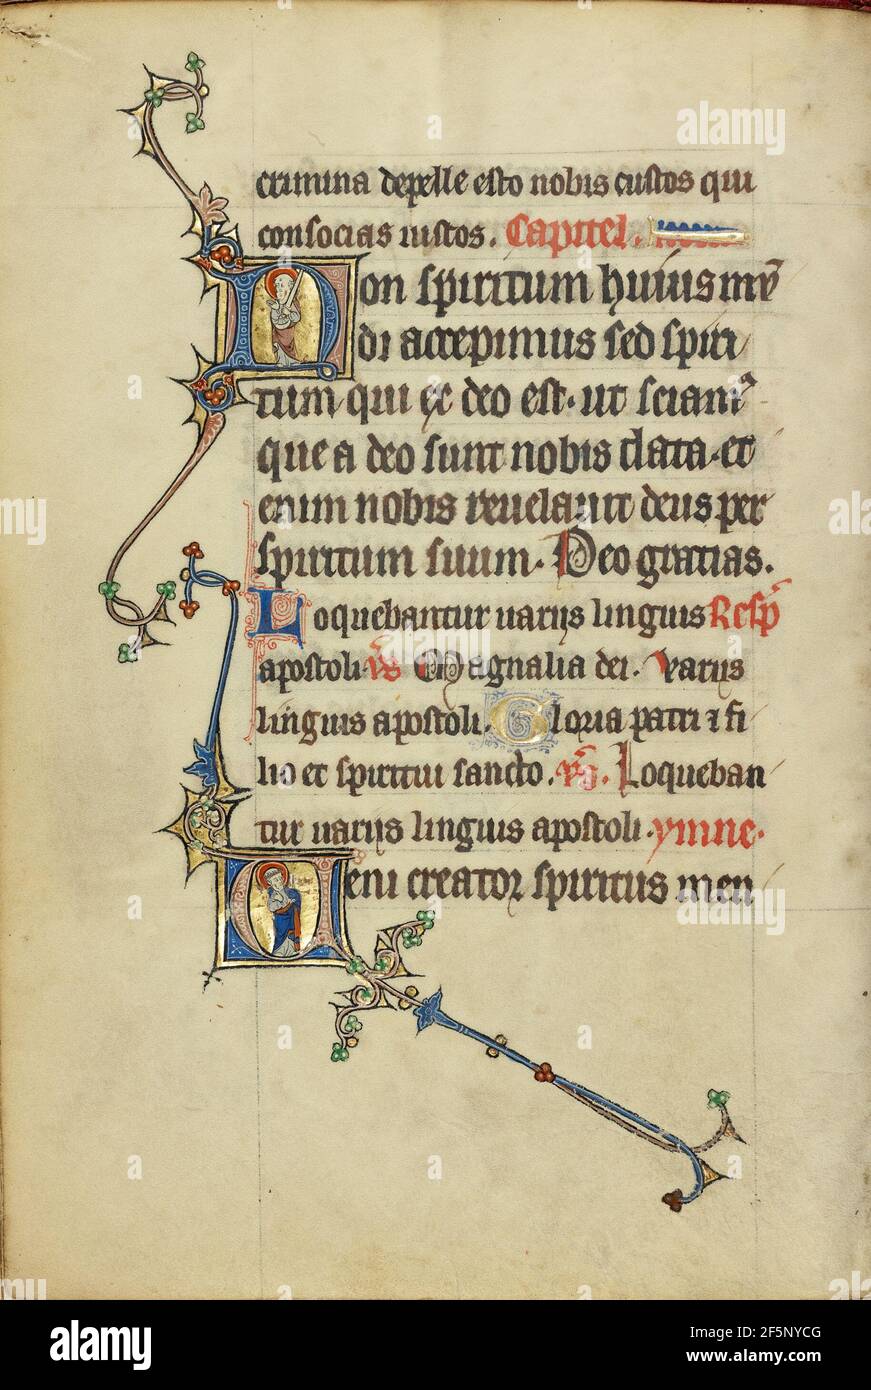 crimina depelle esto nobis custos qui
consocias iustos. Capitel.
Non spiritum huius mū
di accepimus sed spiri
tum qui ex deo est. ut sciam᷒
que a deo sunt nobis data. et
enim nobis reuelauit deus per
spiritum suum. Deo gratias.
Loquebantur uariis linguis Resp̄
apostoli. v̄s Magnalia dei. variis
linguis apostoli. Gloria patri ⁊ fi
lio et spiritui sancto. v̄s. Loqueban
tur uariis linguis apostoli. ymne.
Ueni creator spiritus men
alamy
a
alamy
Image ID: 2F5NYCG
www.alamy.com